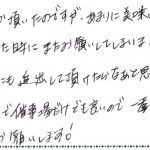 頂いたのですが、あまりに美味
た時にまたお願いしてしまいま
にも進出して頂けたらなあと思
で催事場だけでも良いので一週
お願いします!